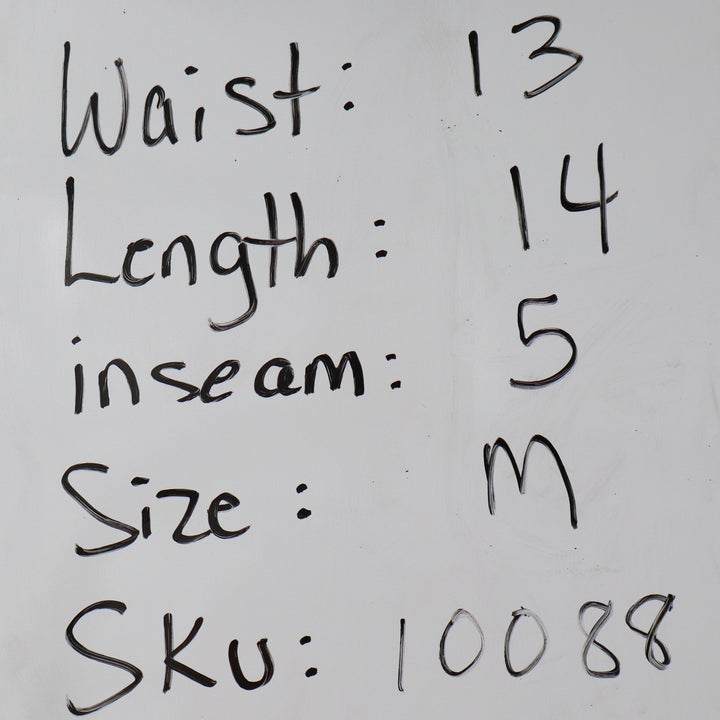 Waist: 13
Length: 14
inseam: 5
Size: M
SKU: 10088